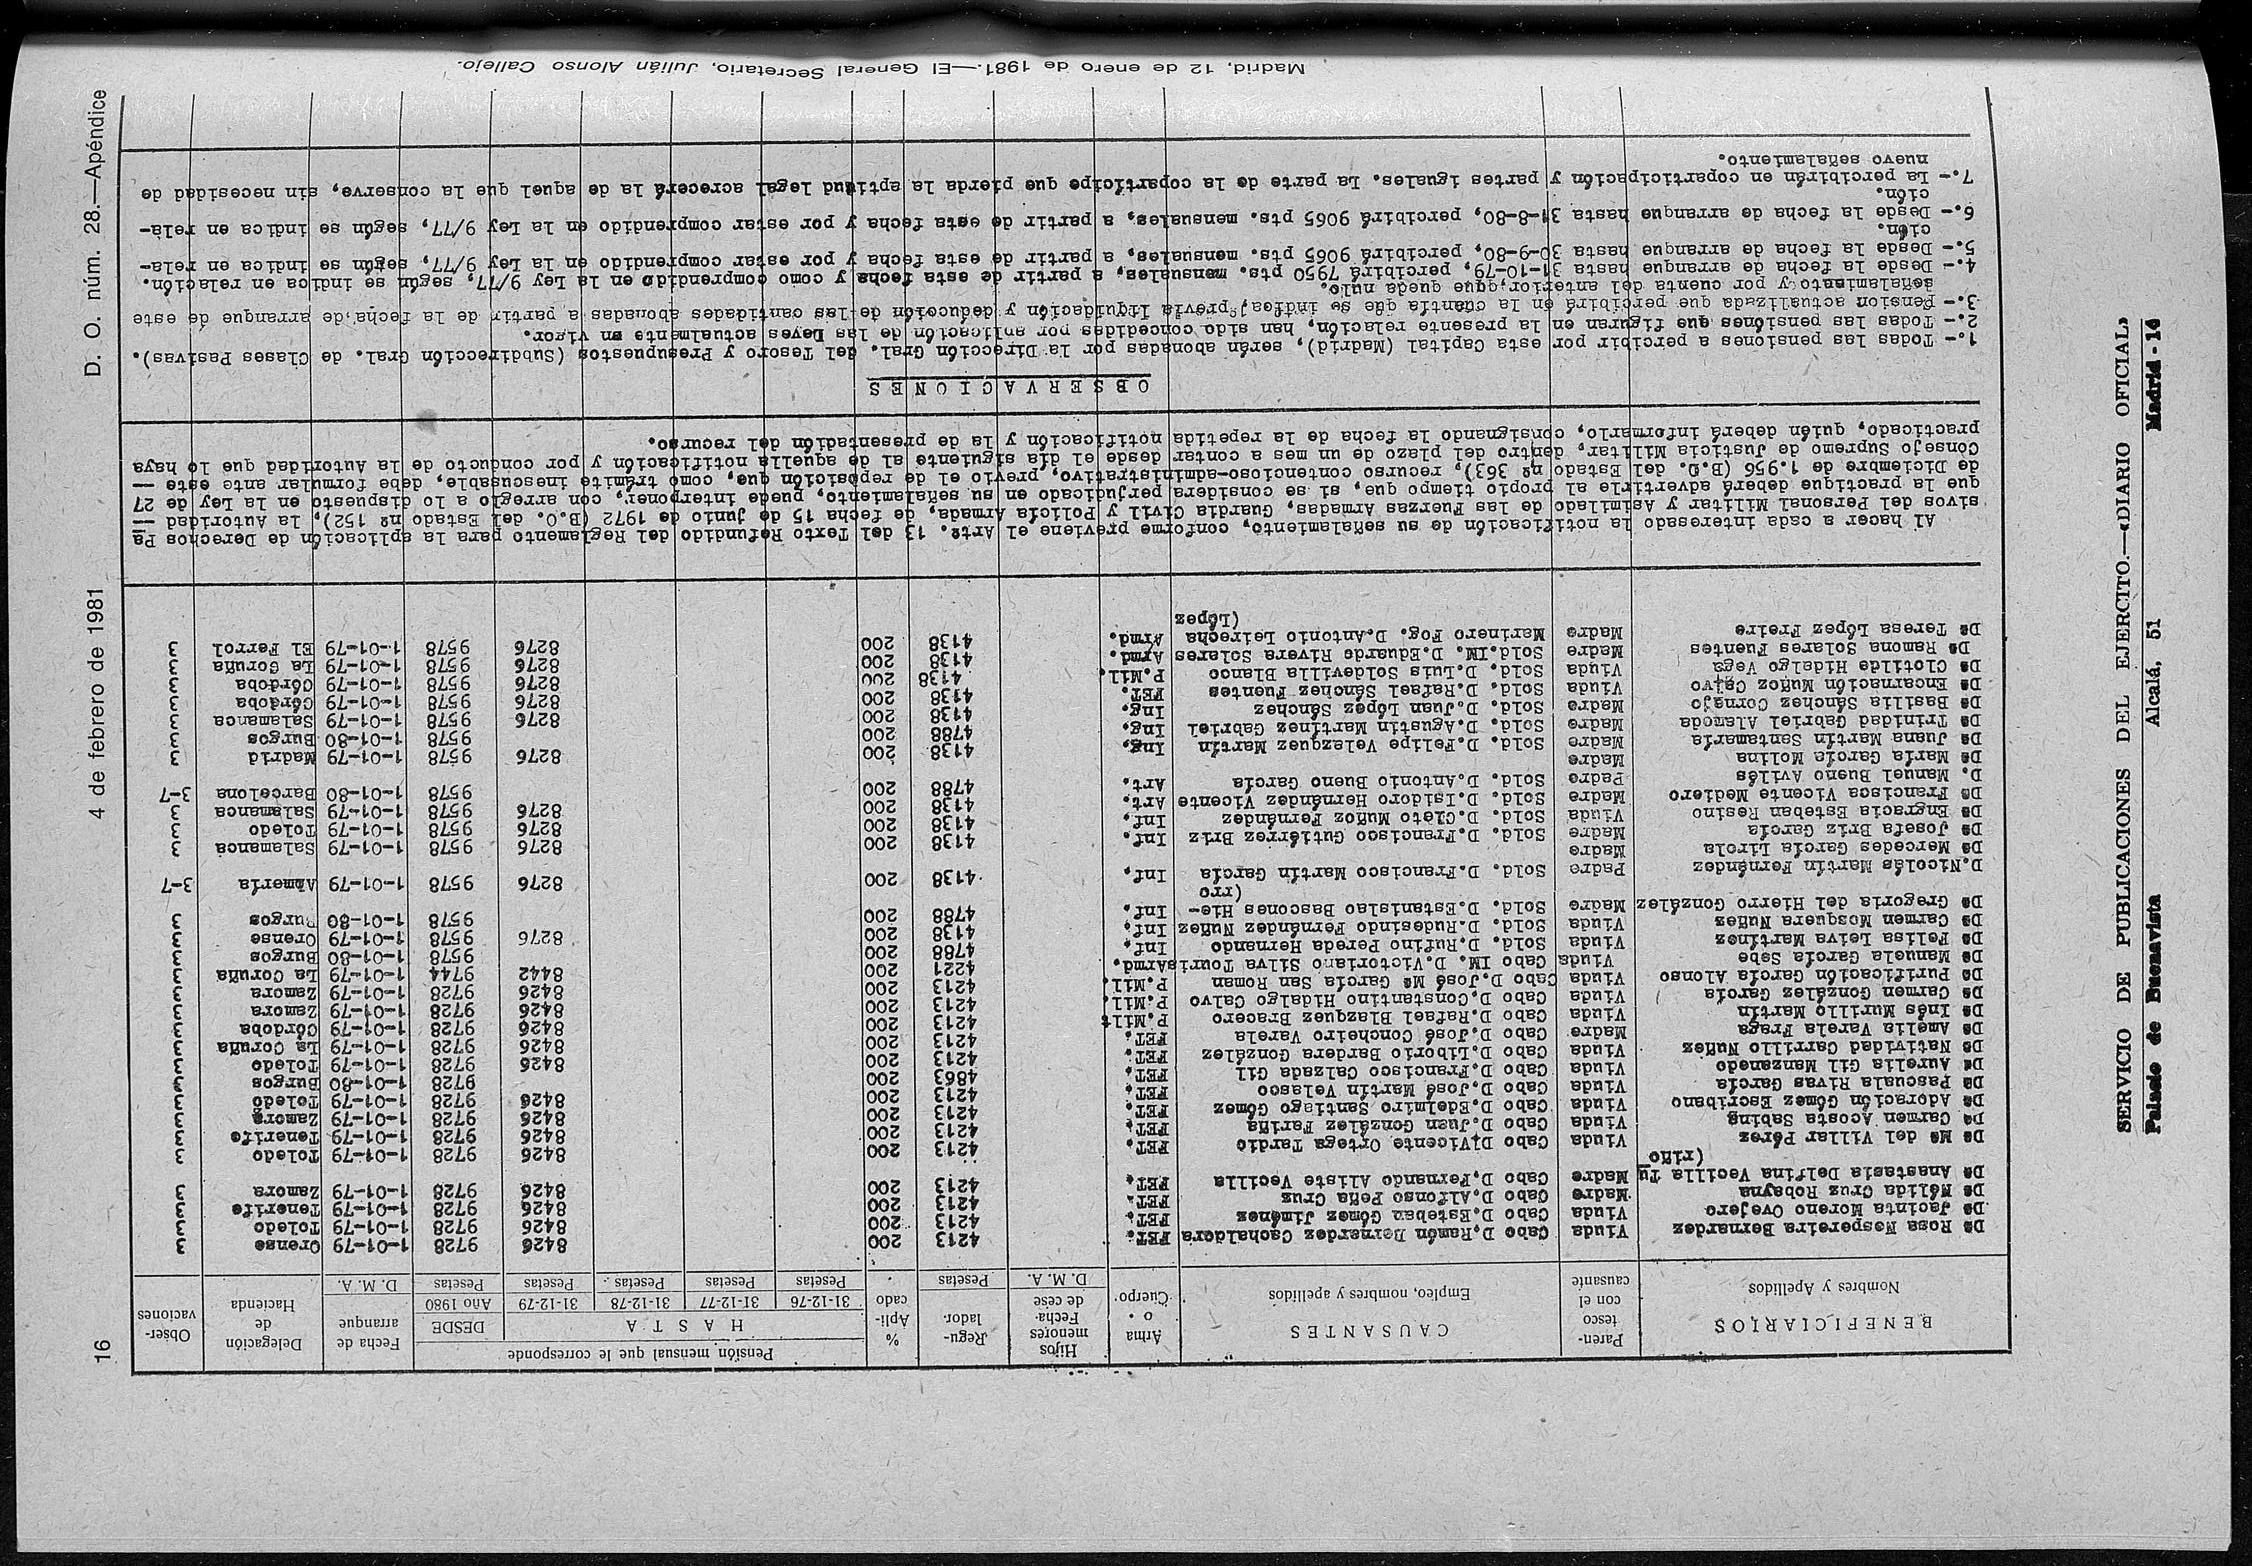 16
4 de febrero de 1981
D. O. núm. 28.—Apéndice
BENEFICIARIOS
Nombres y Apellidos
Paren-
tesco
con el
causante
CAUSANTES
Empleo, nombres y apellidos
Arma
o
Cuerpo
Hijos
menores
Fecha
de cese
D. M. A.
Regu-
lador
Pesetas
%
Apli-
cado
Pensión mensual que le corresponde
HASTA
31-12-76 31-12-77 31-12-78 31-12-79
Pesetas Pesetas Pesetas Pesetas
DESDE
Año 1980
Pesetas
Fecha de
arranque
D. M. A.
Delegación
de
Hacienda
Obser-
vaciones
Dª Rosa Nespereira Bernardez Viuda Cabo D.Ramón Bernardez Cachaldora FET. 4213 200 8426 9728 1-01-79 Orense 3
Dª Jacinta Moreno Ovejero Viuda Cabo D.Esteban Gómez Jiménez FET. 4213 200 8426 9728 1-01-79 Toledo 3
Dª Nélida Cruz Robayna Madre Cabo D.Alfonso Peña Cruz FET. 4213 200 8426 9728 1-01-79 Tenerife 3
Dª Anastasia Delfina Vecilla Tu Madre Cabo D.Fernando Aliste Vecilla FET. 4213 200 8426 9728 1-01-79 Zamora 3
(riño
Dª Mª del Villar Pérez Viuda Cabo D.Vicente Ortega Tardio FET. 4213 200 8426 9728 1-01-79 Toledo 3
Dª Carmen Acosta Sabina Viuda Cabo D.Juan González Fariña FET. 4213 200 8426 9728 1-01-79 Tenerife 3
Dª Adoración Gómez Escribano Viuda Cabo D.Edelmiro Santiago Gómez FET. 4213 200 8426 9728 1-01-79 Zamora 3
Dª Pascuala Rivas García Viuda Cabo D.José Martín Velasco FET. 4213 200 8426 9728 1-01-79 Toledo 3
Dª Aurelia Gil Manzanedo Viuda Cabo D.Francisco Calzada Gil FET. 4863 200 9728 1-01-80 Burgos 3
Dª Natividad Carrillo Nuñez Viuda Cabo D.Liborio Bardera González FET. 4213 200 8426 9728 1-01-79 Toledo 3
Dª Amelia Varela Fraga Madre Cabo D.José Concheiro Varela FET. 4213 200 8426 9728 1-01-79 La Coruña 3
Dª Inés Murillo Martín Viuda Cabo D.Rafael Blazquez Bracero P.Milt 4213 200 8426 9728 1-01-79 Córdoba 3
Dª Carmen González García Viuda Cabo D.Constantino Hidalgo Calvo P.Mil. 4213 200 8426 9728 1-01-79 Zamora 3
Dª Purificación García Alonso Viuda Cabo D.José Mª García San Roman P.Mil. 4213 200 8426 9728 1-01-79 Zamora 3
Dª Manuela García Sebe Viuda Cabo IM. D.Victoriano Silva Touris Armd. 4221 200 8442 9744 1-01-79 La Coruña 3
Dª Felisa Leiva Martínez Viuda Sold. D.Rufino Pereda Hernando Inf. 4788 200 9578 1-01-80 Burgos 3
Dª Carmen Mosquera Nuñez Viuda Sold. D.Rudesindo Fernández Nuñez Inf. 4138 200 8276 9578 1-01-79 Orense 3
Dª Gregoria del Hierro González Madre Sold. D.Estanislao Bascones Hie- Inf. 4788 200 9578 1-01-80 Burgos 3
(rro
D.Nicolás Martín Fernández Padre Sold. D.Francisco Martín García Inf. 4138 200 8276 9578 1-01-79 Almería 3-7
Dª Mercedes García Lirola Madre
Dª Josefa Briz García Madre Sold. D.Francisco Gutiérrez Briz Inf. 4138 200 8276 9578 1-01-79 Salamanca 3
Dª Engracia Esteban Resino Viuda Sold. D.Cleto Muñoz Fernández Inf. 4138 200 8276 9578 1-01-79 Toledo 3
Dª Francisca Vicente Mediero Madre Sold. D.Isidoro Hernández Vicente Art. 4138 200 8276 9578 1-01-79 Salamanca 3
D. Manuel Bueno Avilés Padre Sold. D.Antonio Bueno García Art. 4788 200 9578 1-01-80 Barcelona 3-7
Dª María García Molina Madre
Dª Juana Martín Santamaría Madre Sold. D.Felipe Velazquez Martín Ing. 4138 200 8276 9578 1-01-79 Madrid 3
Dª Trinidad Gabriel Alameda Madre Sold. D.Agustín Martínez Gabriel Ing. 4788 200 9578 1-01-80 Burgos 3
Dª Basilia Sánchez Cornejo Madre Sold. D.Juan López Sánchez Ing. 4138 200 8276 9578 1-01-79 Salamanca 3
Dª Encarnación Muñoz Calvo Viuda Sold. D.Rafael Sánchez Fuentes FET. 4138 200 8276 9578 1-01-79 Córdoba 3
Dª Clotilde Hidalgo Vega Viuda Sold. D.Luis Soldevilla Blanco P.Mil. 4138 200 8276 9578 1-01-79 Córdoba 3
Dª Ramona Solares Fuentes Madre Sold.IM. D.Eduardo Rivera Solares Armd. 4138 200 8276 9578 1-01-79 La Coruña 3
Dª Teresa López Freire Madre Marinero Fog. D.Antonio Leirecha Armd. 4138 200 8276 9578 1-01-79 El Ferrol 3
(López
Al hacer a cada interesado la notificación de su señalamiento, conforme previene el Artº. 13 del Texto Refundido del Reglamento para la aplicación de Derechos Pa
sivos del Personal Militar y Asimilado de las Fuerzas Armadas, Guardia Civil y Policía Armada, de fecha 15 de junio de 1972 (B.O. del Estado nº 152), la Autoridad —
que la practique deberá advertirle al propio tiempo que, si se considera perjudicado en su señalamiento, puede interponer, con arreglo a lo dispuesto en la Ley de 27
de Diciembre de 1.956 (B.O. del Estado nº 363), recurso contencioso-administrativo, previo el de reposición que, como trámite inexcusable, debe formular ante este —
Consejo Supremo de Justicia Militar, dentro del plazo de un mes a contar desde el día siguiente al de aquella notificación y por conducto de la Autoridad que lo haya
practicado, quién deberá informarlo, consignando la fecha de la repetida notificación y la de presentación del recurso.
OBSERVACIONES
1.- Todas las pensiones a percibir por esta Capital (Madrid), serán abonadas por la Dirección Gral. del Tesoro y Presupuestos (Subdirección Gral. de Clases Pasivas).
2.- Todas las pensiones que figuran en la presente relación, han sido concedidas por aplicación de las Leyes actualmente en vigor.
3.- Pensión actualizada que percibirá en la cuantía que se indica, previa liquidación y deducción de las cantidades abonadas a partir de la fecha de arranque de este
señalamiento y por cuenta del anterior, que queda nulo.
4.- Desde la fecha de arranque hasta 31-10-79, percibirá 7950 pts. mensuales, a partir de esta fecha y como comprendido en la Ley 9/77, según se indica en relación.
5.- Desde la fecha de arranque hasta 30-9-80, percibirá 9065 pts. mensuales, a partir de esta fecha y por estar comprendido en la Ley 9/77, según se indica en rela-
ción.
6.- Desde la fecha de arranque hasta 31-8-80, percibirá 9065 pts. mensuales, a partir de esta fecha y por estar comprendido en la Ley 9/77, según se indica en rela-
ción.
7.- La percibirán en coparticipación y partes iguales. La parte de la copartícipe que pierda la aptitud legal acrecerá la de aquel que la conserve, sin necesidad de
nuevo señalamiento.
Madrid, 12 de enero de 1981.—El General Secretario, Julián Alonso Callejo.
SERVICIO DE PUBLICACIONES DEL EJERCITO.—«DIARIO OFICIAL»
Palacio de Buenavista Alcalá, 51 Madrid - 14